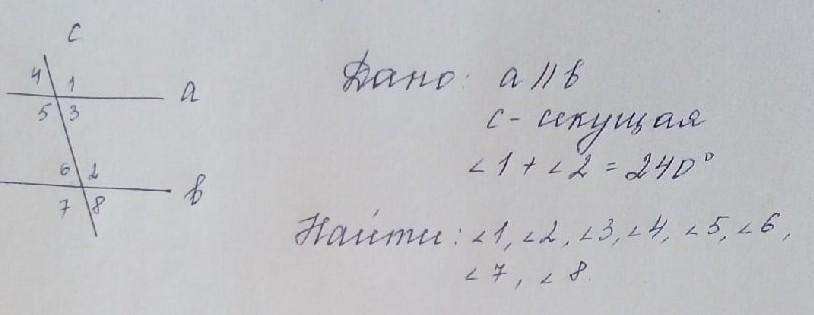 c
4 1
a
5 3
6 2
b
7 8
Дано: a || b
c - секущая
∠1 + ∠2 = 240°
Найти: ∠1, ∠2, ∠3, ∠4, ∠5, ∠6,
∠7, ∠8.